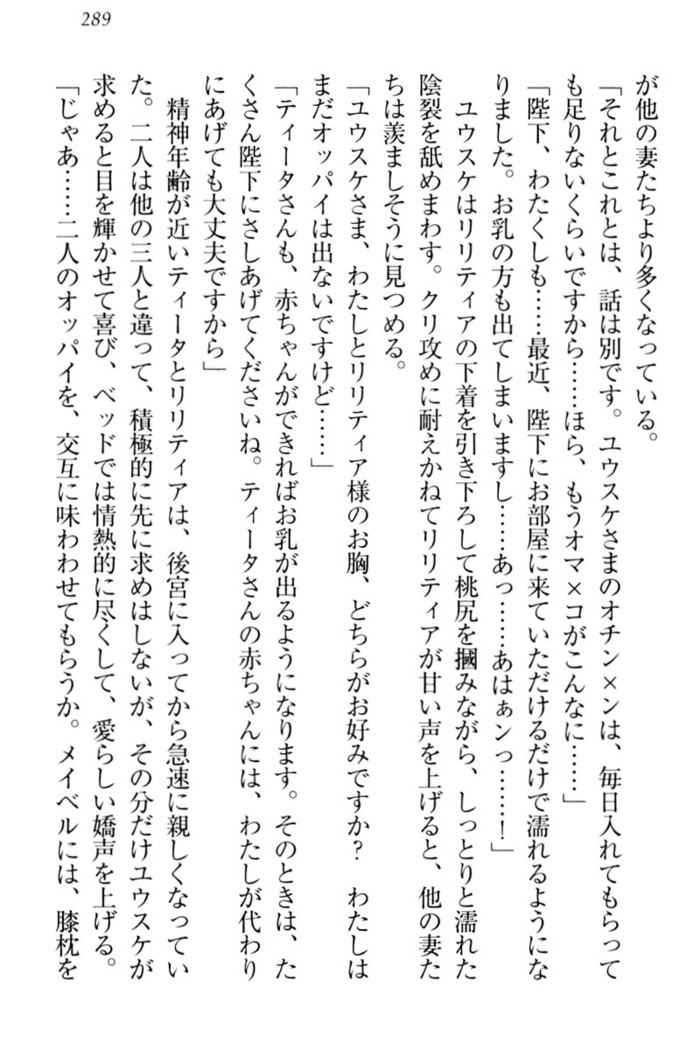 289
が他の妻たちより多くなっている。
「それとこれとは、話は別です。ユウスケさまのオチン×ンは、毎日入れてもらって
も足りないくらいですから……ほら、もうオマ×コがこんなに……」
「陛下、わたくしも……最近、陛下にお部屋に来ていただけるだけで濡れるようにな
りました。お乳の方も出てしまいますし……あっ……あはぁンっ……！」
　ユウスケはリリティアの下着を引き下ろして桃尻を摑みながら、しっとりと濡れた
陰裂を舐めまわす。クリ攻めに耐えかねてリリティアが甘い声を上げると、他の妻た
ちは羨ましそうに見つめる。
「ユウスケさま、わたしとリリティア様のお胸、どちらがお好みですか？　わたしは
まだオッパイは出ないですけど……」
「ティータさんも、赤ちゃんができればお乳が出るようになります。そのときは、た
くさん陛下にさしあげてくださいね。ティータさんの赤ちゃんには、わたしが代わり
にあげても大丈夫ですから」
　精神年齢が近いティータとリリティアは、後宮に入ってから急速に親しくなってい
た。二人は他の三人と違って、積極的に先に求めはしないが、その分だけユウスケが
求めると目を輝かせて喜び、ベッドでは情熱的に尽くして、愛らしい嬌声を上げる。
「じゃあ……二人のオッパイを、交互に味わわせてもらうか。メイベルには、膝枕を